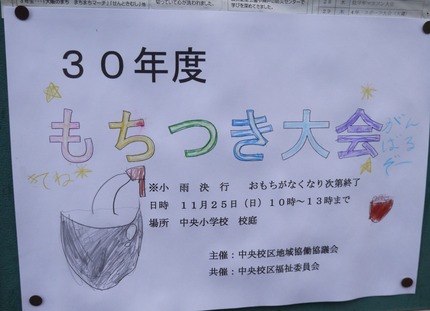 30年度
もちつき大会
がん
ばろ
ぞー
きてね
※小雨決行 おもちがなくなり次第終了
日時 11月25日（日）10時～13時まで
場所 中央小学校 校庭
主催：中央校区地域協働協議会
共催：中央校区福祉委員会